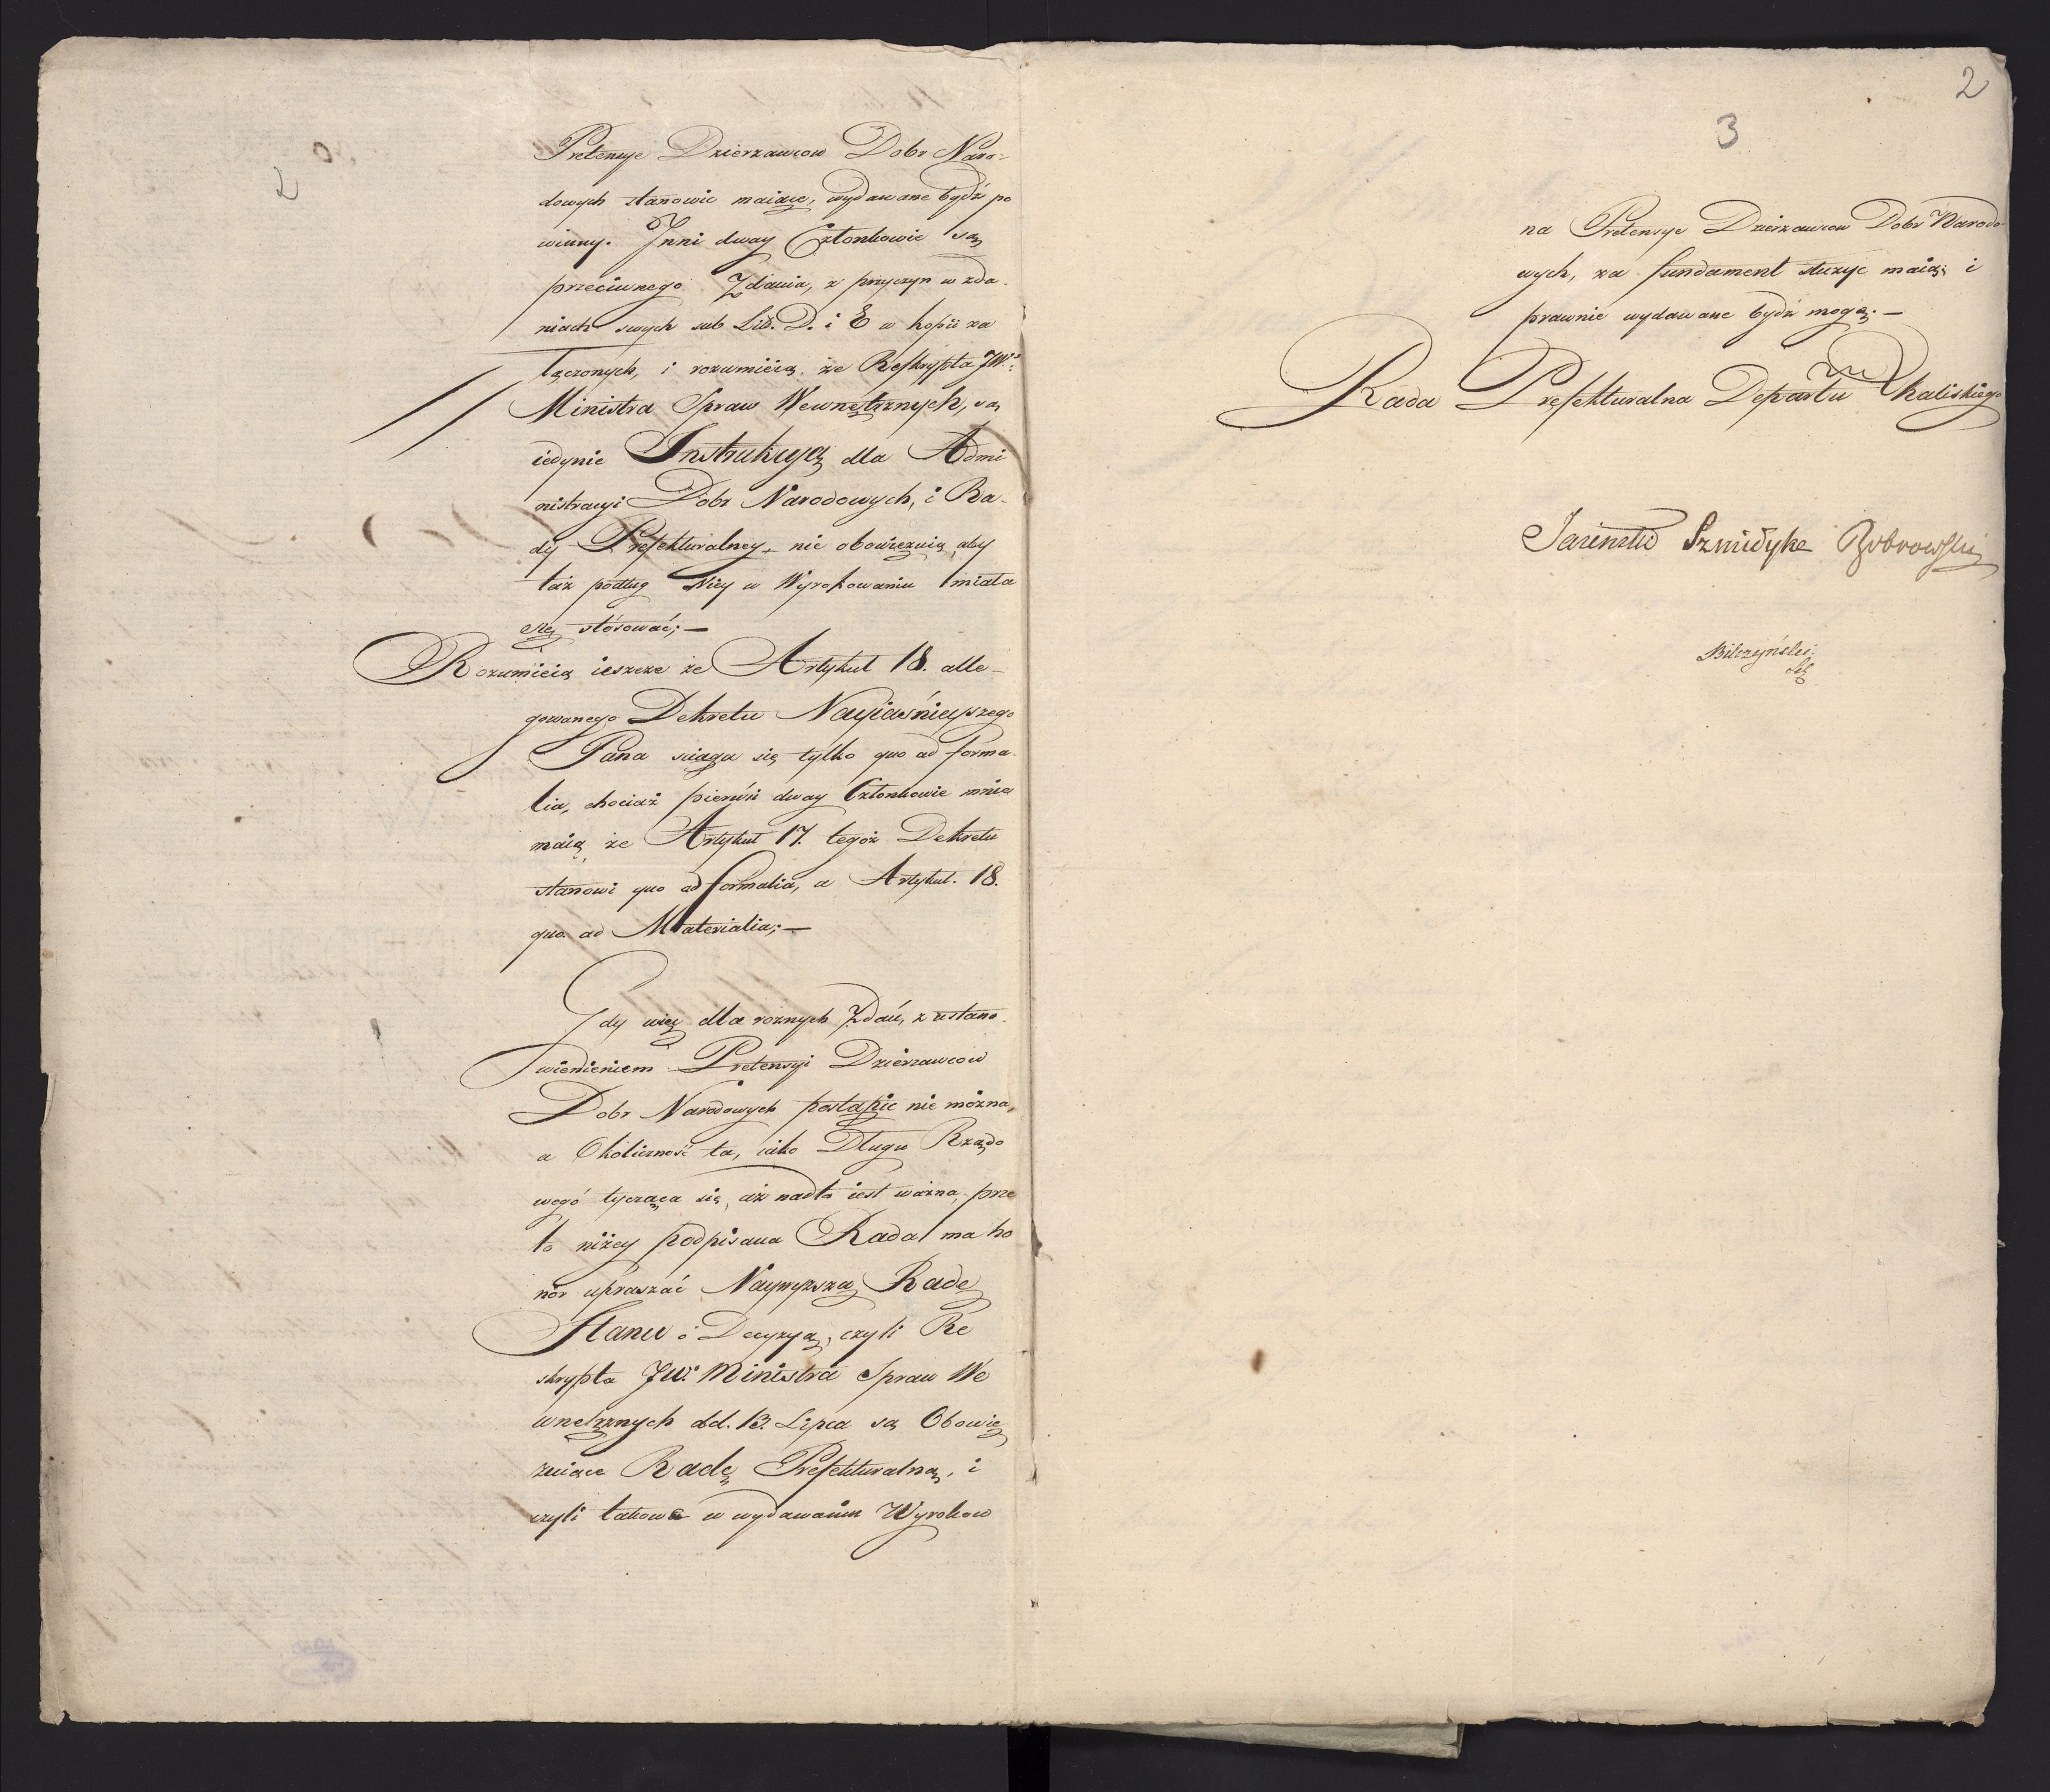 2
Pretensye Dzierzawcow Dobr Naro-
dowych stanowic maiące, wydawane bydź po
winny. Jnni dway Członkowie są
przeciwnego Zdania, z przyczyn w zda-
niach swych sub Lit. D. i E w kopii za
łączonych, i rozumieią, że Reskrypta JW.
Ministra Spraw Wewnętrznych, są
iedynie Instrukcyą dla Admi
nistracyi Dobr Narodowych, i Ra-
dy Prefekturalney nie obowięzuią, aby
taż podług Niey w Wyrokowaniu miała
się stósować; —
Rozumieią ieszcze że Artykuł 18. alle-
gowanego Dekretu Nayiaśnieyszego
Pana sciąga się tylko quo ad forma-
lia, chociaż pierwsi dway Członkowie mnie
maią, że Artykuł 17. tegoż Dekretu
stanowi quo ad formalia, a Artykuł. 18.
quo ad Materialia; —
Gdy więc dla rożnych Zdań, z ustano-
wienieniem Pretensyi Dzierzawcow
Dobr Narodowych postąpic nie można,
a Okoliczność ta, iako Długu Rządo
wego tycząca się, aż nadto iest ważna, prze
to niżey podpisana Rada ma ho
nor upraszać Naywyższą Radę
Stanu o Decyzyą, czyli Re
skrypta JW. Ministra Spraw We
wnetrznych dd. 13. Lipca są Obowię
zuiące Radę Prefekturalną, i
czyli takowe w wydawaniu Wyrokow
2
3
na Pretensye Dzierzawcow Dobr Narodo-
wych, za fundament służyc maią; i
prawnie wydawane bydź mogą. —
Rada Prefekturalna Departtu Kaliskiego
Szmidyke Bobrowski
Bilczyński